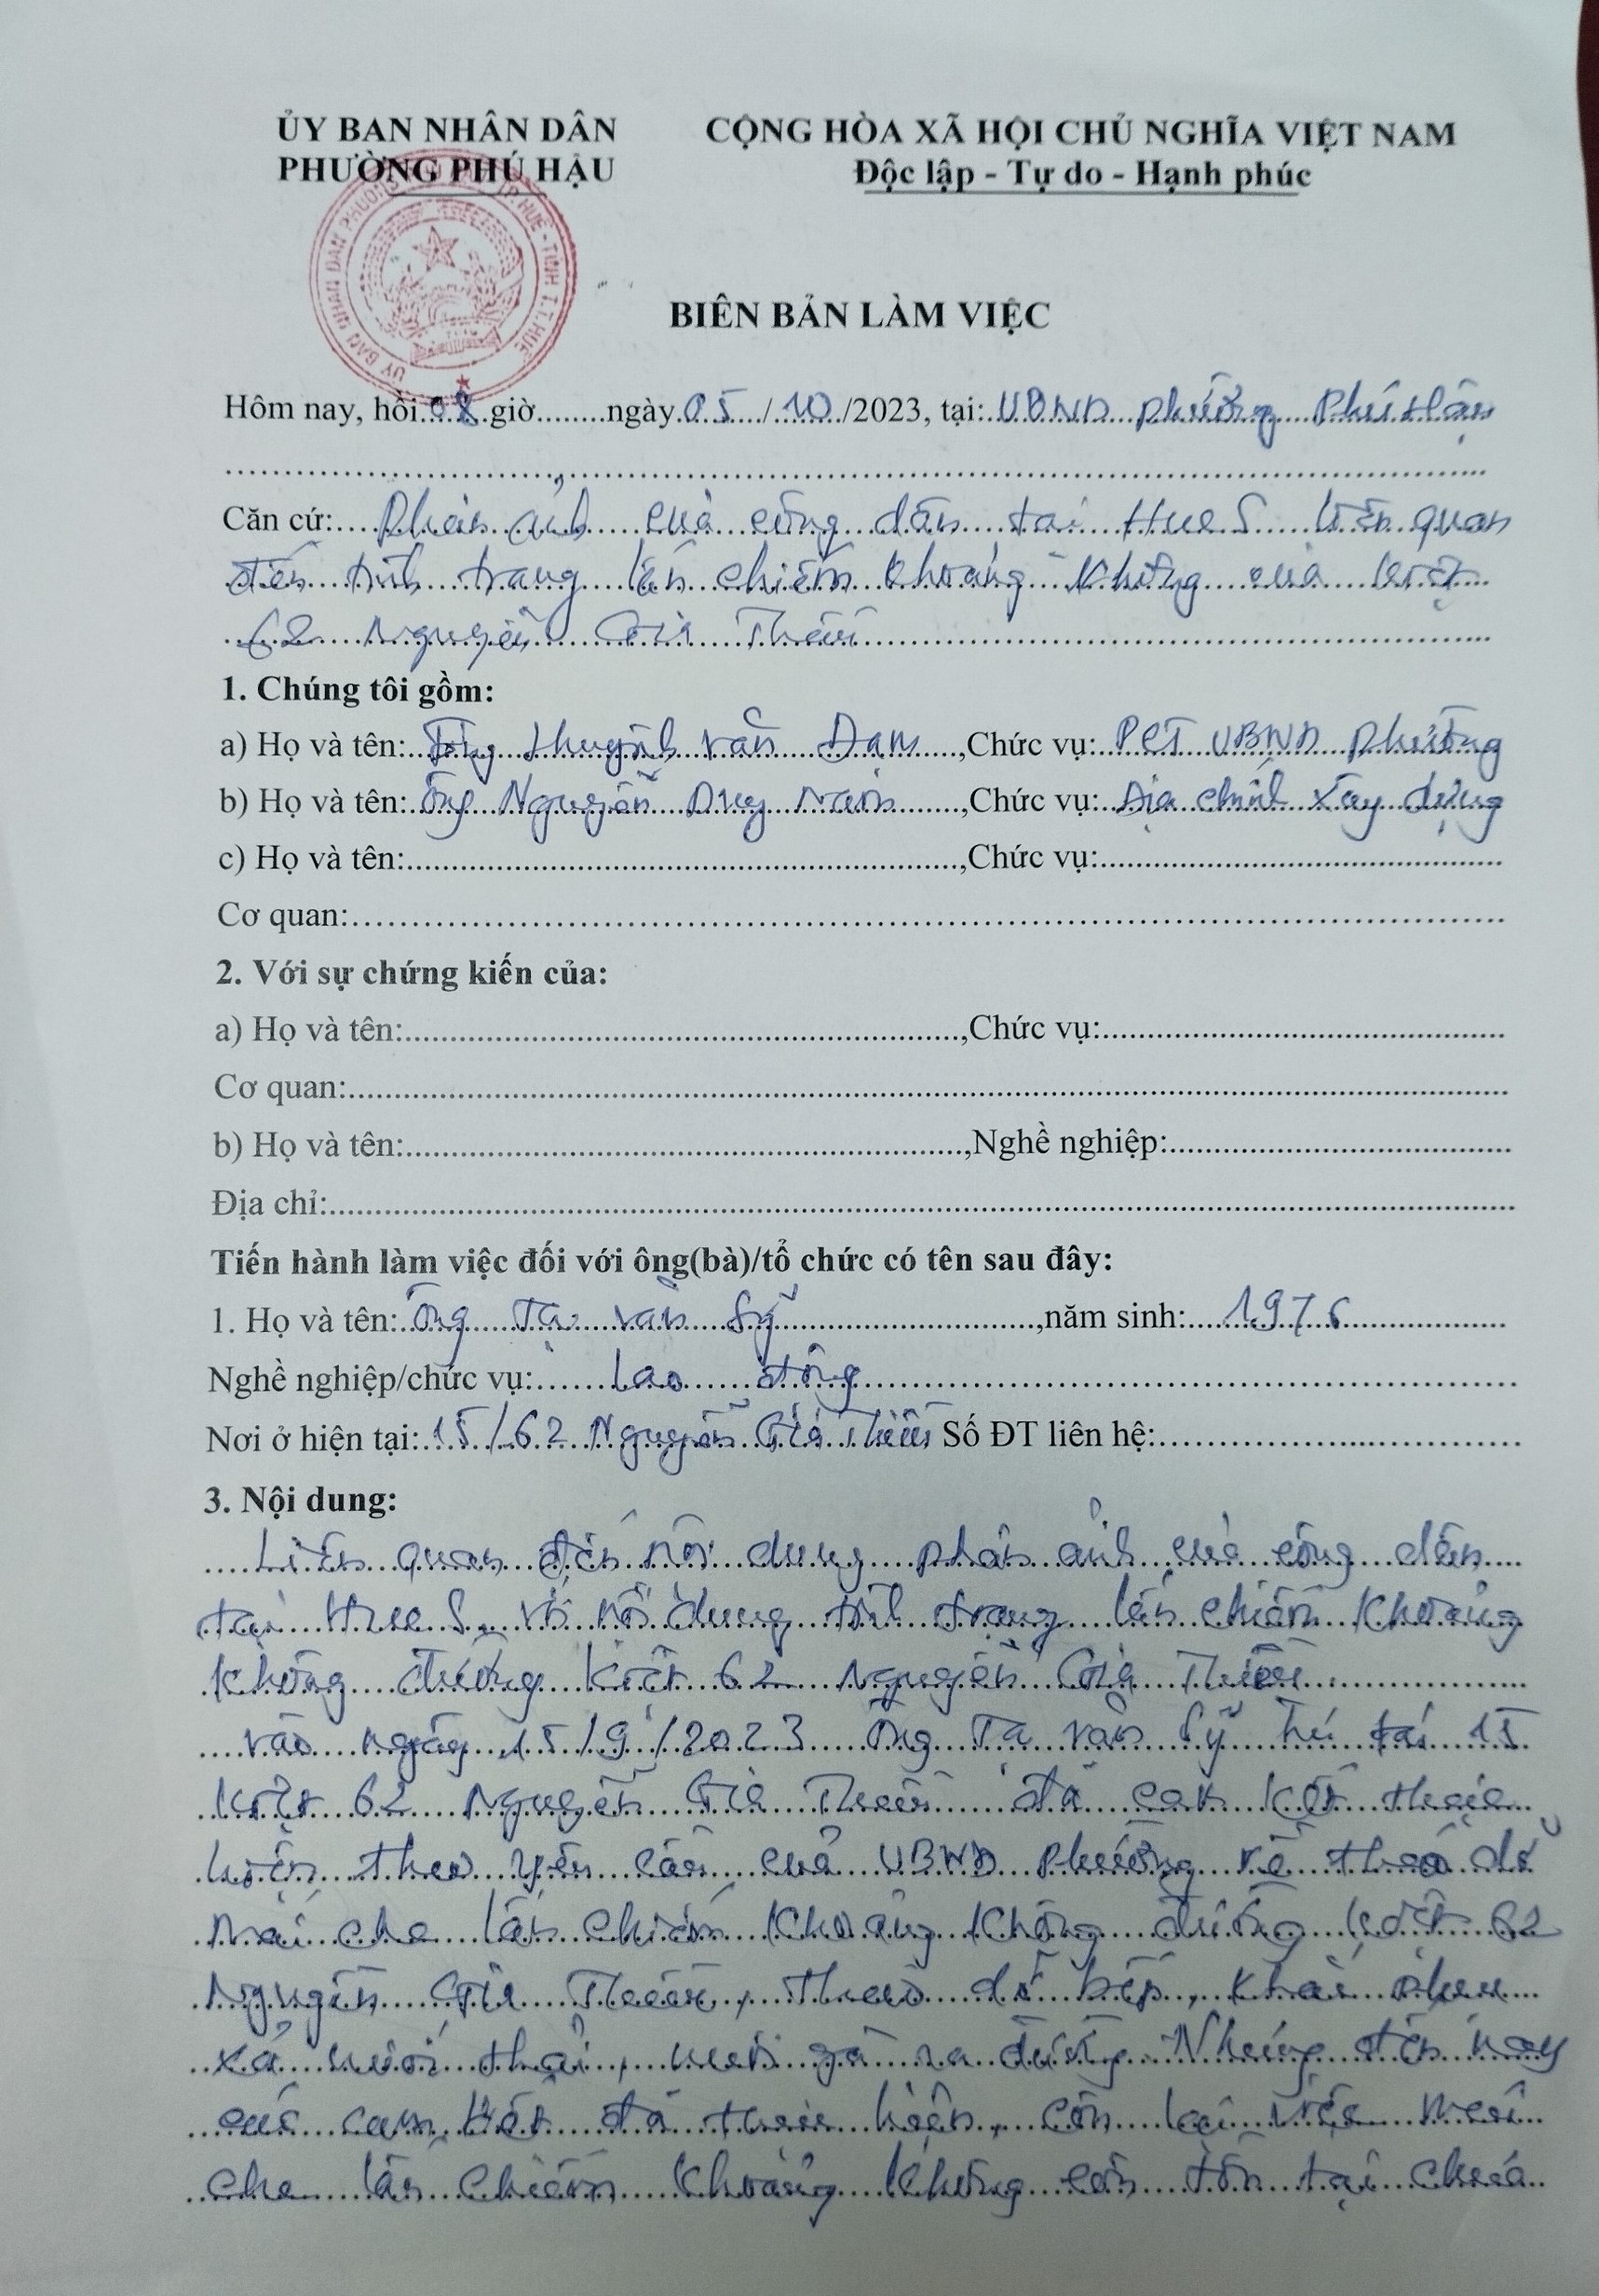 ỦY BAN NHÂN DÂN
PHƯỜNG PHÚ HẬU
CỘNG HÒA XÃ HỘI CHỦ NGHĨA VIỆT NAM
Độc lập - Tự do - Hạnh phúc
ỦY BAN NHÂN DÂN PHƯỜNG TP. HUẾ - TỈNH T.T.HUẾ
BIÊN BẢN LÀM VIỆC
Hôm nay, hồi 08 giờ........ngày 05/10/2023, tại: UBND phường Phú Hậu
Căn cứ: Phản ánh của công dân tại Hue S liên quan
đến tình trạng lấn chiếm khoảng không của kiệt
62 Nguyễn Gia Thiều
1. Chúng tôi gồm:
a) Họ và tên: Ông Huỳnh Văn Đạm, Chức vụ: PCT UBND phường
b) Họ và tên: Ông Nguyễn Duy Nam, Chức vụ: Địa chính xây dựng
c) Họ và tên:..............................,Chức vụ:..............................
Cơ quan:..............................
2. Với sự chứng kiến của:
a) Họ và tên:..............................,Chức vụ:..............................
Cơ quan:..............................
b) Họ và tên:..............................,Nghề nghiệp:..............................
Địa chỉ:..............................
Tiến hành làm việc đối với ông(bà)/tổ chức có tên sau đây:
1. Họ và tên: Ông Tạ Văn Sỹ, năm sinh: 1976
Nghề nghiệp/chức vụ: Lao động
Nơi ở hiện tại: 15/62 Nguyễn Gia Thiều Số ĐT liên hệ:..............................
3. Nội dung:
Liên quan đến nội dung phản ánh của công dân
tại Hue S về nội dung tình trạng lấn chiếm khoảng
không đường kiệt 62 Nguyễn Gia Thiều
vào ngày 15/9/2023 Ông Tạ Văn Sỹ trú tại 15
kiệt 62 Nguyễn Gia Thiều đã cam kết thực
hiện theo yêu cầu của UBND phường về tháo dỡ
mái che lấn chiếm khoảng không đường kiệt 62
Nguyễn Gia Thiều, tháo dỡ bếp,
xả nước thải, nuôi gà ra đường. Nhưng đến nay
các cam kết đã thực hiện, còn lại việc mái
che lấn chiếm khoảng không còn tồn tại chưa